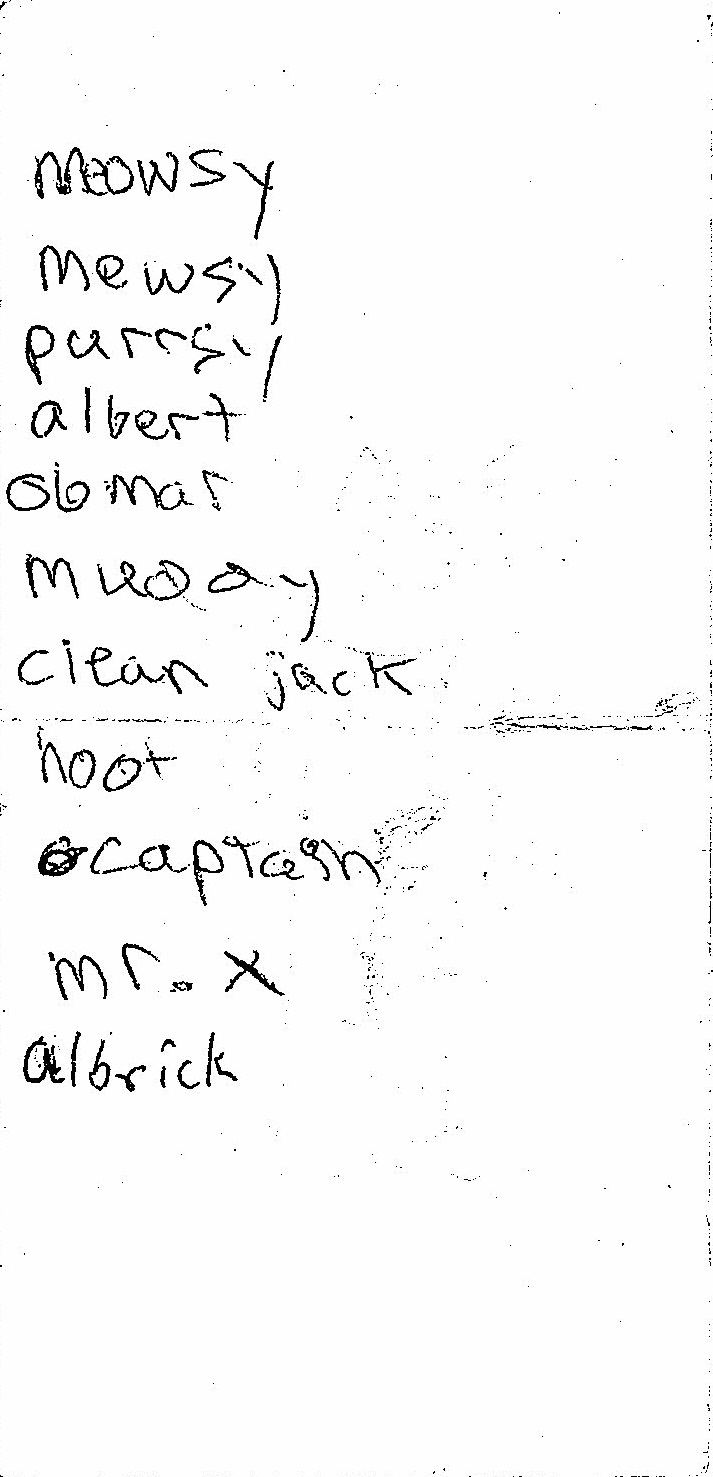 meowsy
mewsy
purrsy
albert
obmar
clean jack
hoot
captain
mr. x
albrick